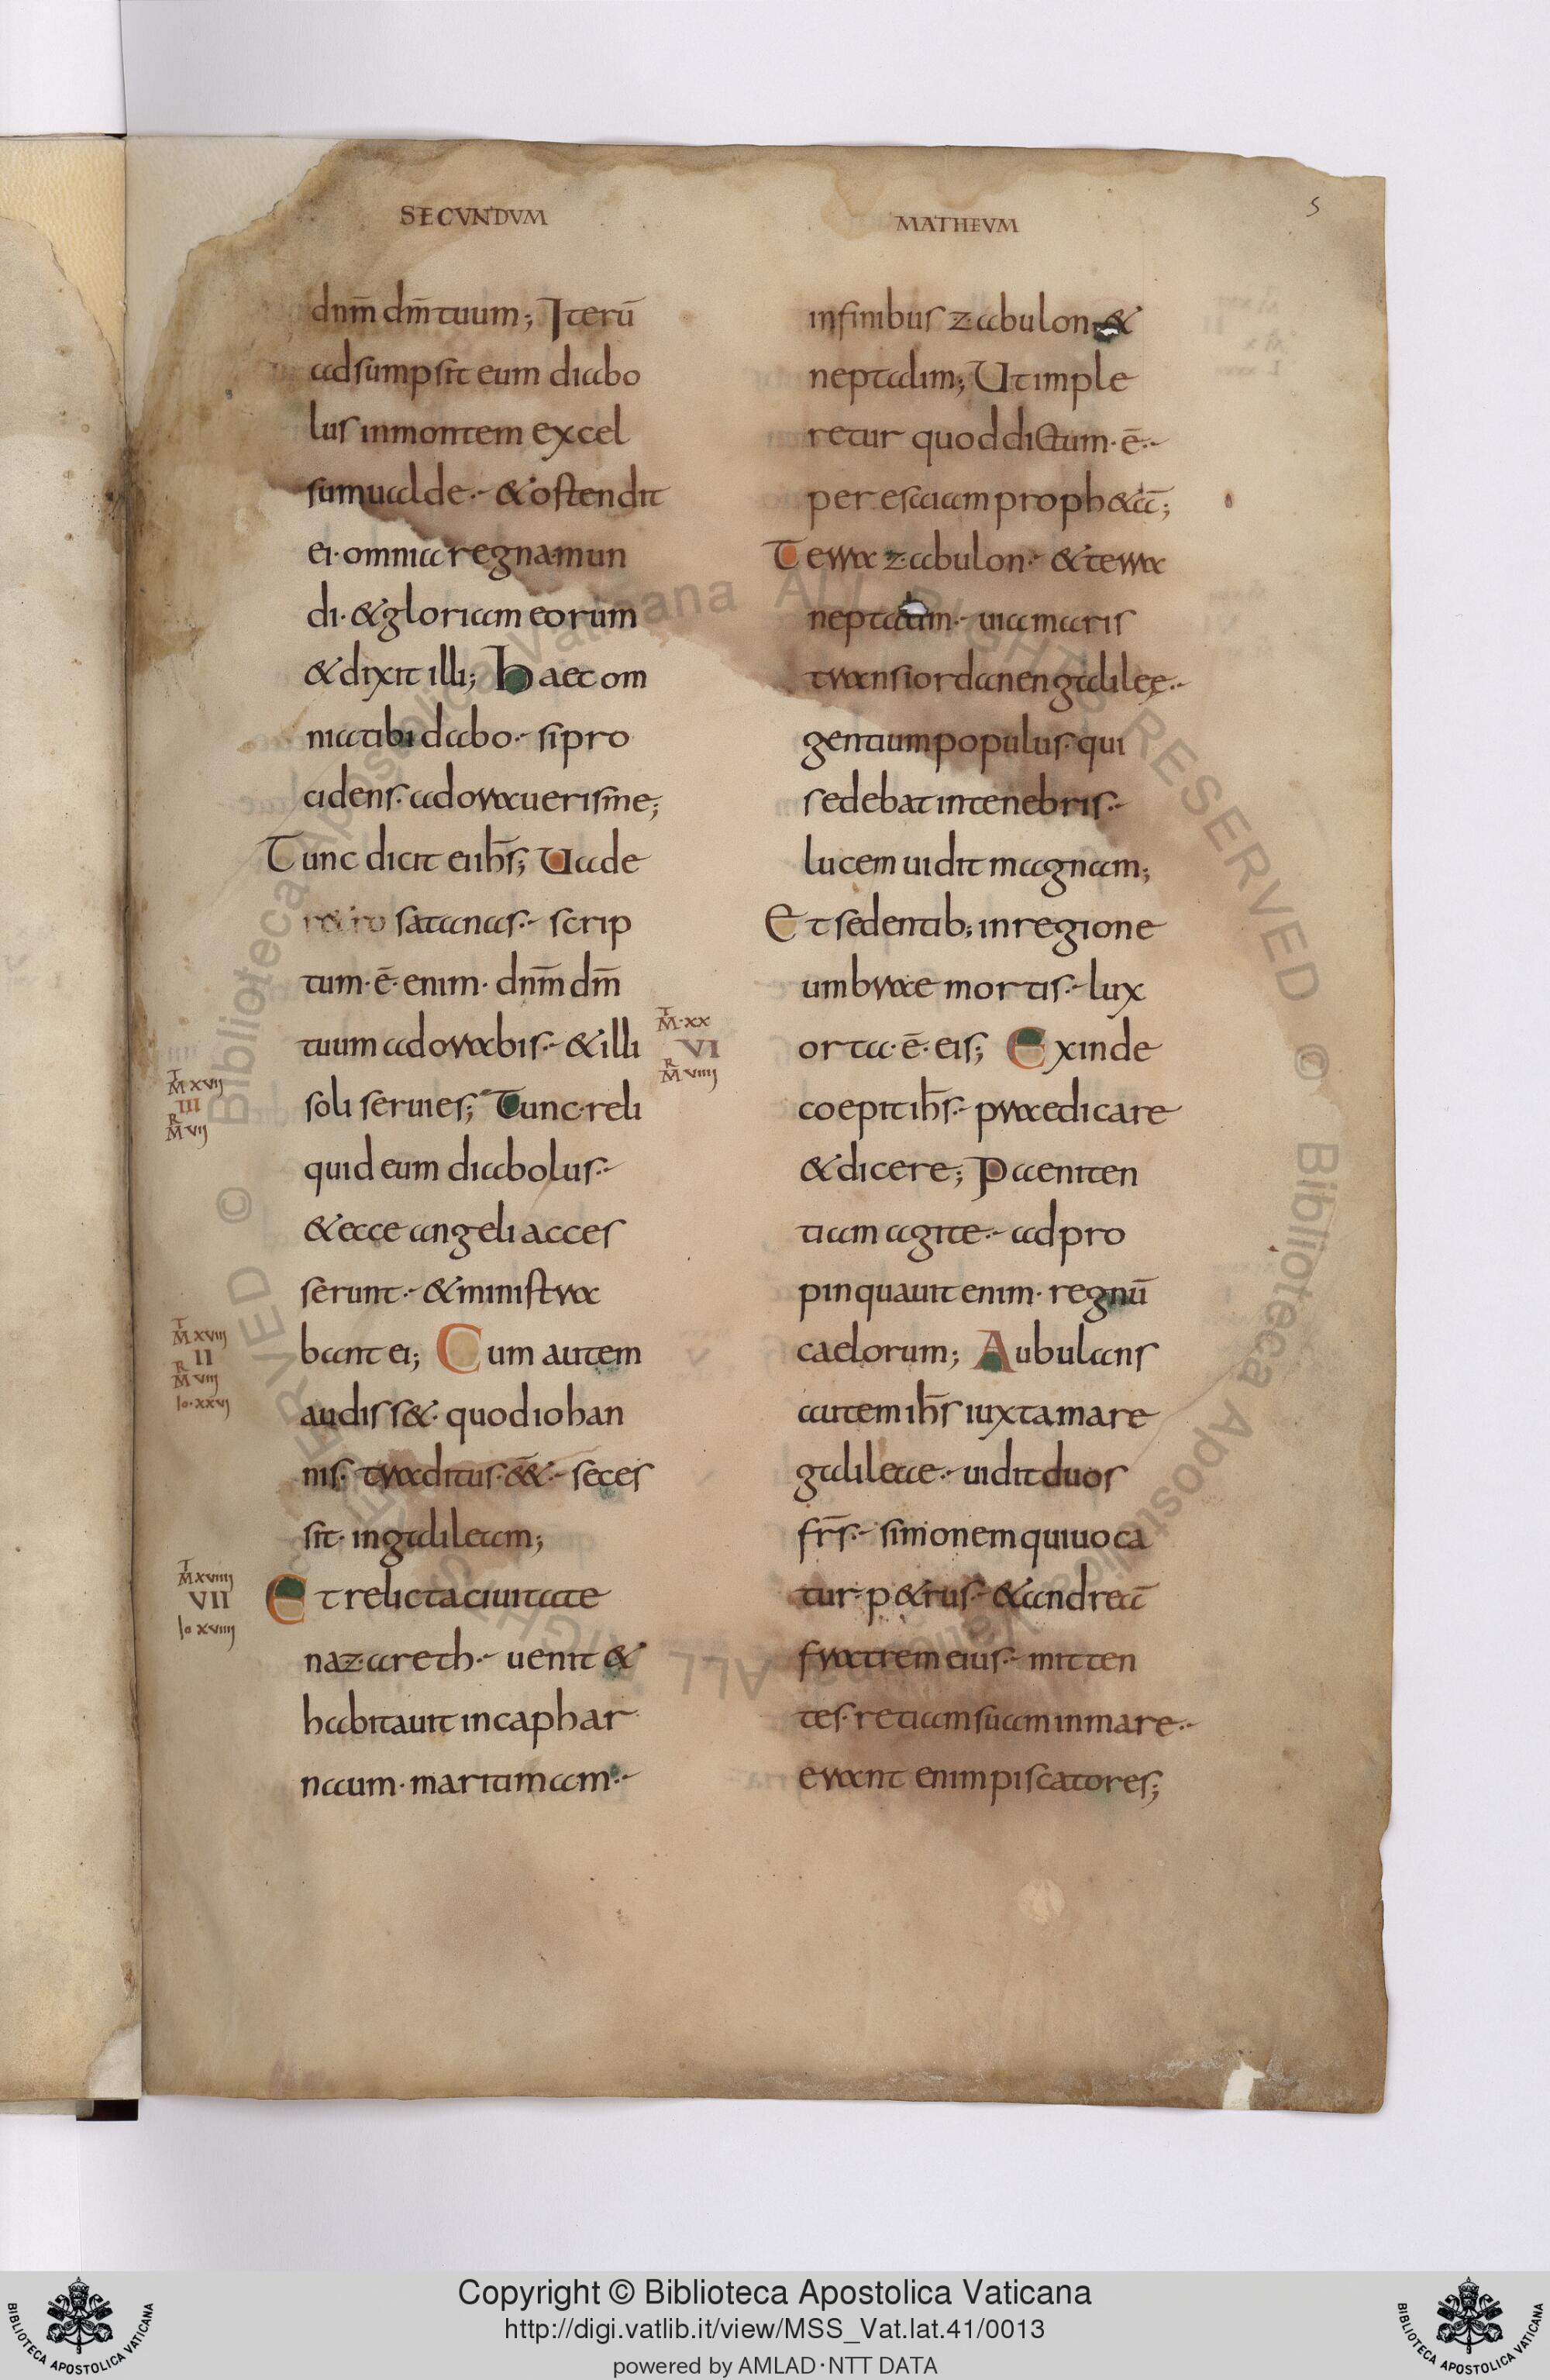 SECVNDVM
dnm̄ dm̄ tuum; Iterū
adsumpsit eum diabo
lus inmontem excel
sum ualde·- & ostendit
ei· omnia regna mun
di· & gloriam eorum
& dixit illi; Haec om
nia tibi dabo·- si pro
cidens· adoraueris me;
Tunc dicit ei ih̄s; Uade
retro satanas·- scrip
tum· ē· enim· dnm̄ dm̄
tuum adorabis·- & illi
soli seruies; Tunc reli
quid eum diabolus·-
& ecce angeli acces
serunt·- & ministra
bant ei; Cum autem
audiss&· quod iohan
nis· traditus· ēē&·- seces
sit· in galileam;
Et relicta ciuitate
nazareth·- uenit &
habitauit in caphar
naum· maritimam·-
T
M XVII
III
R
M VII
T
M XVIII
II
R
M VIII
Io· XXVI
T
M XVIIII
VII
Io XVIIII
MATHEVM
5
infinibus zabulon &
neptalim; Ut imple
retur quod dictum· ē·-
per esaiam proph&ā;
Terra zabulon·- & terra
uia maris
trans iordanen galileę·-
gentium populus· qui
sedebat in tenebris·-
lucem uidit magnam;
Et sedentib; in regione
umbrae mortis·- lux
orta· ē· eis; Exinde
coepit ih̄s·- praedicare
& dicere; Paeniten
tiam agite·- adpro
pinquauit enim· regnū
caelorum; Aubulans
autem ih̄s iuxta mare
galileae·- uidit duos
fr̄s·- simonem qui uoca
tur·- p&rus·- & andreā
fratrem eius·- mitten
tes· retiam suam in mare·-
erant enim piscatores;
T
M· XX
VI
R
M VIIII
© Biblioteca Apostolica Vaticana ALL RIGHTS RESERVED © Biblioteca Apostolica Vaticana ALL RIGHTS RESERVED
Copyright © Biblioteca Apostolica Vaticana
http://digi.vatlib.it/view/MSS_Vat.lat.41/0013
powered by AMLAD·NTT DATA
BIBLIOTECA APOSTOLICA VATICANA
BIBLIOTECA APOSTOLICA VATICANA